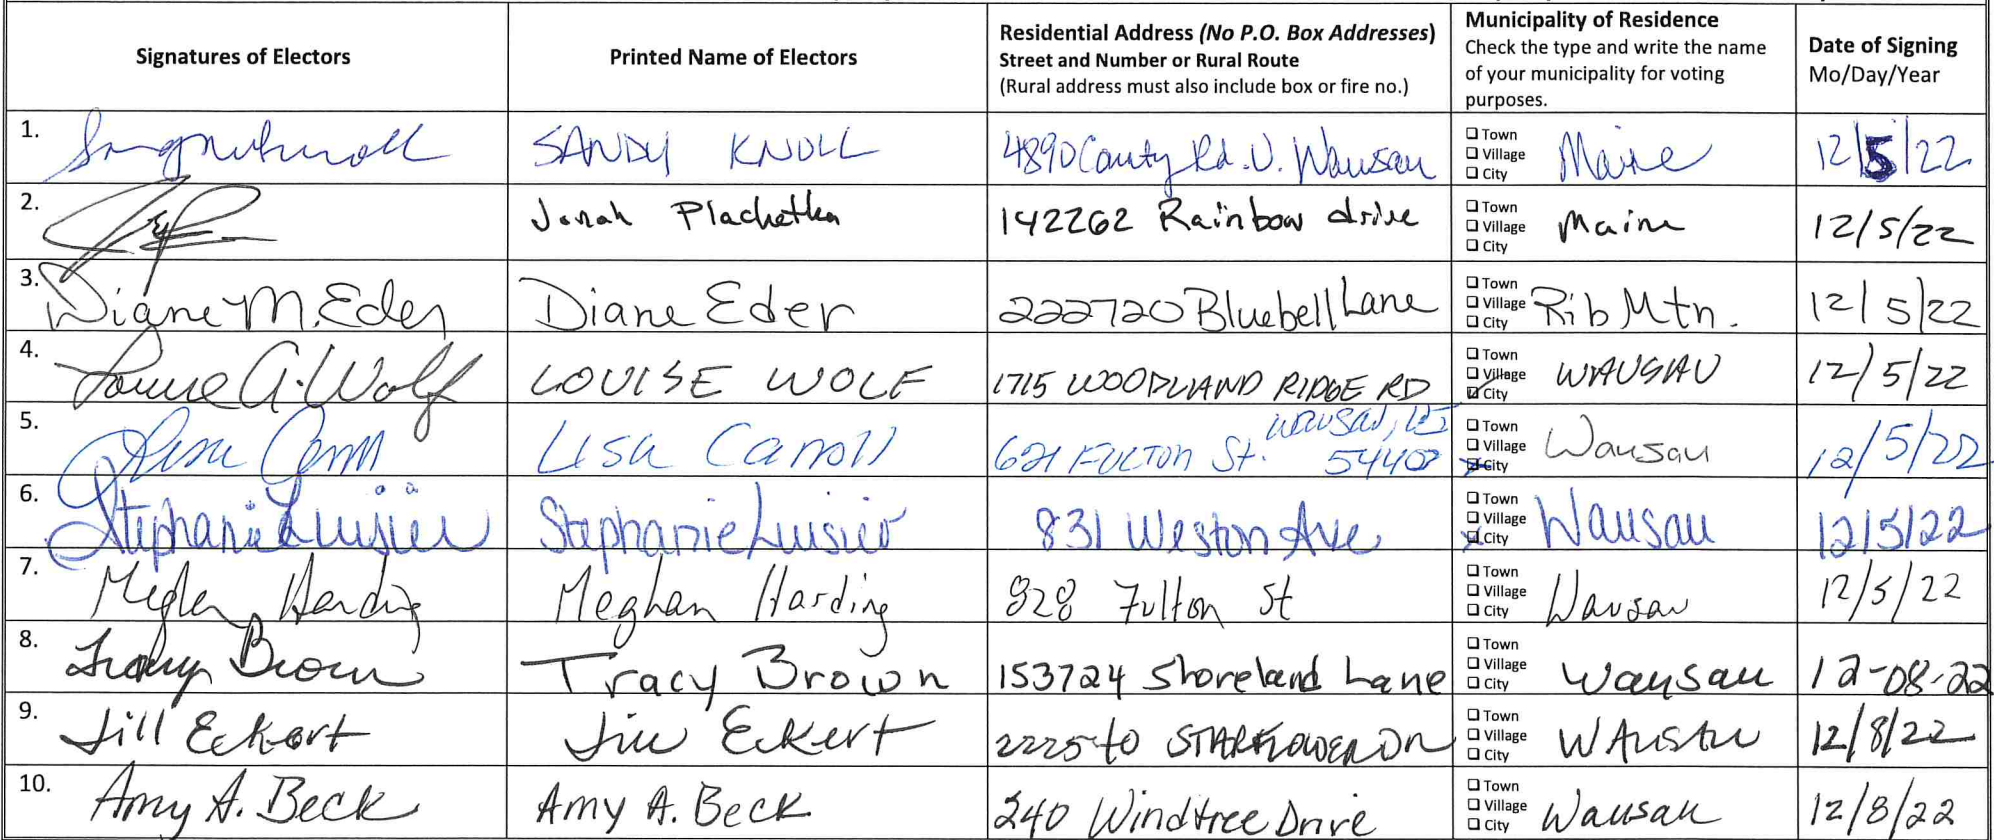 Signatures of Electors
Printed Name of Electors
Residential Address (No P.O. Box Addresses)
Street and Number or Rural Route
(Rural address must also include box or fire no.)
Municipality of Residence
Check the type and write the name
of your municipality for voting
purposes.
Date of Signing
Mo/Day/Year
1. SANDY KNOLL 4890 County Rd. U. Wausau Town Village City Maine 12/5/22
2. Jonah Plachetka 142262 Rainbow drive Town Village City Maine 12/5/22
3. Diane M. Eder Diane Eder 222720 Bluebell Lane Town Village City Rib Mtn. 12/5/22
4. Louise A. Wolf LOUISE WOLF 1715 WOODLAND RIDGE RD Town Village City WAUSAU 12/5/22
5. Lisa Carroll Lisa Carroll 621 FULTON St. Wausau, WI 54403 Town Village City Wausau 12/5/22
6. Stephanie Luisier Stephanie Luisier 831 Weston Ave Town Village City Wausau 12/5/22
7. Meghan Harding Meghan Harding 828 Fulton St Town Village City Wausau 12/5/22
8. Tracy Brown Tracy Brown 153724 Shoreland Lane Town Village City Wausau 12-08-22
9. Jill Eckert Jill Eckert 222540 STARFLOWER DR Town Village City WAUSAU 12/8/22
10. Amy A. Beck Amy A. Beck 240 Windtree Drive Town Village City Wausau 12/8/22